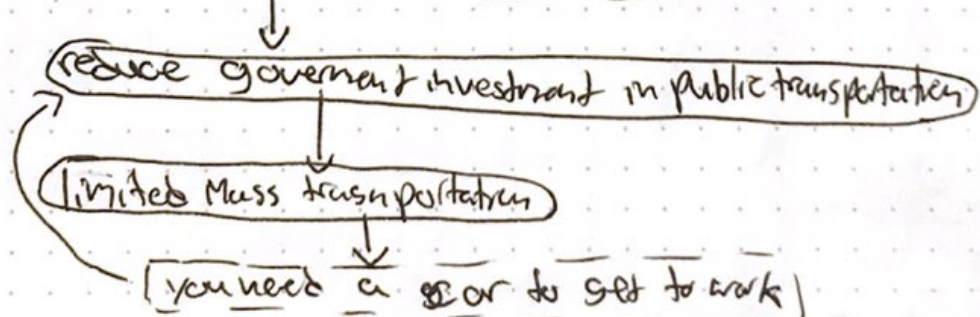 reduce government investment in public transportation
limited Mass trasnportation
you need a car to get to work